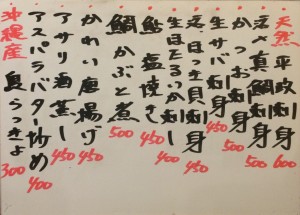 天然 平政刺身 600
活〆真鯛刺身 500
かつお刺身 500
生サバ刺身 450
活ほっき貝刺身 450
生ほたるいか刺し 400
鮎塩焼き 450
鯛かぶと煮 500
かわい唐揚げ 450
アサリ酒蒸し 450
アスパラバター炒め 400
沖縄産 島らっきょ 300